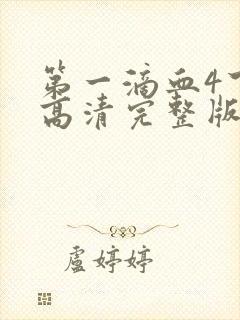 第一滴血4
高清完整版
盧婷婷